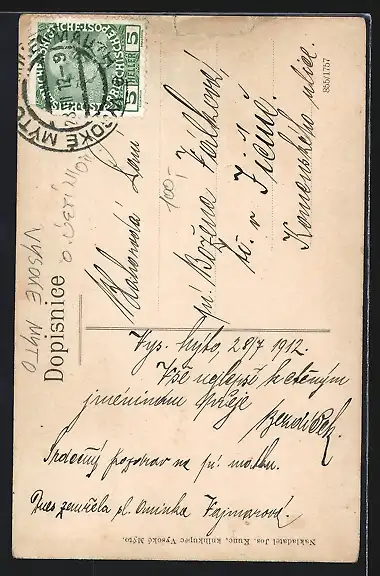 5 HELLER 5
VYSOKÉ MÝTO
VYSOKÉ MÝTO
100-
Dopisnice
Blahorodá Paní
pí. Božena Válková
tč. v Jičíně
Komenského ulice.
855/1757
Vys. Mýto, 28/7 1912.
Vše nejlepší k ctěným
jmeninám přeje
Srdečný pozdrav na pí. matku.
Dnes zemřela sl. Aninka Vajmarová.
Nakladatel Jos. Kunc, knihkupec Vysoké Mýto.